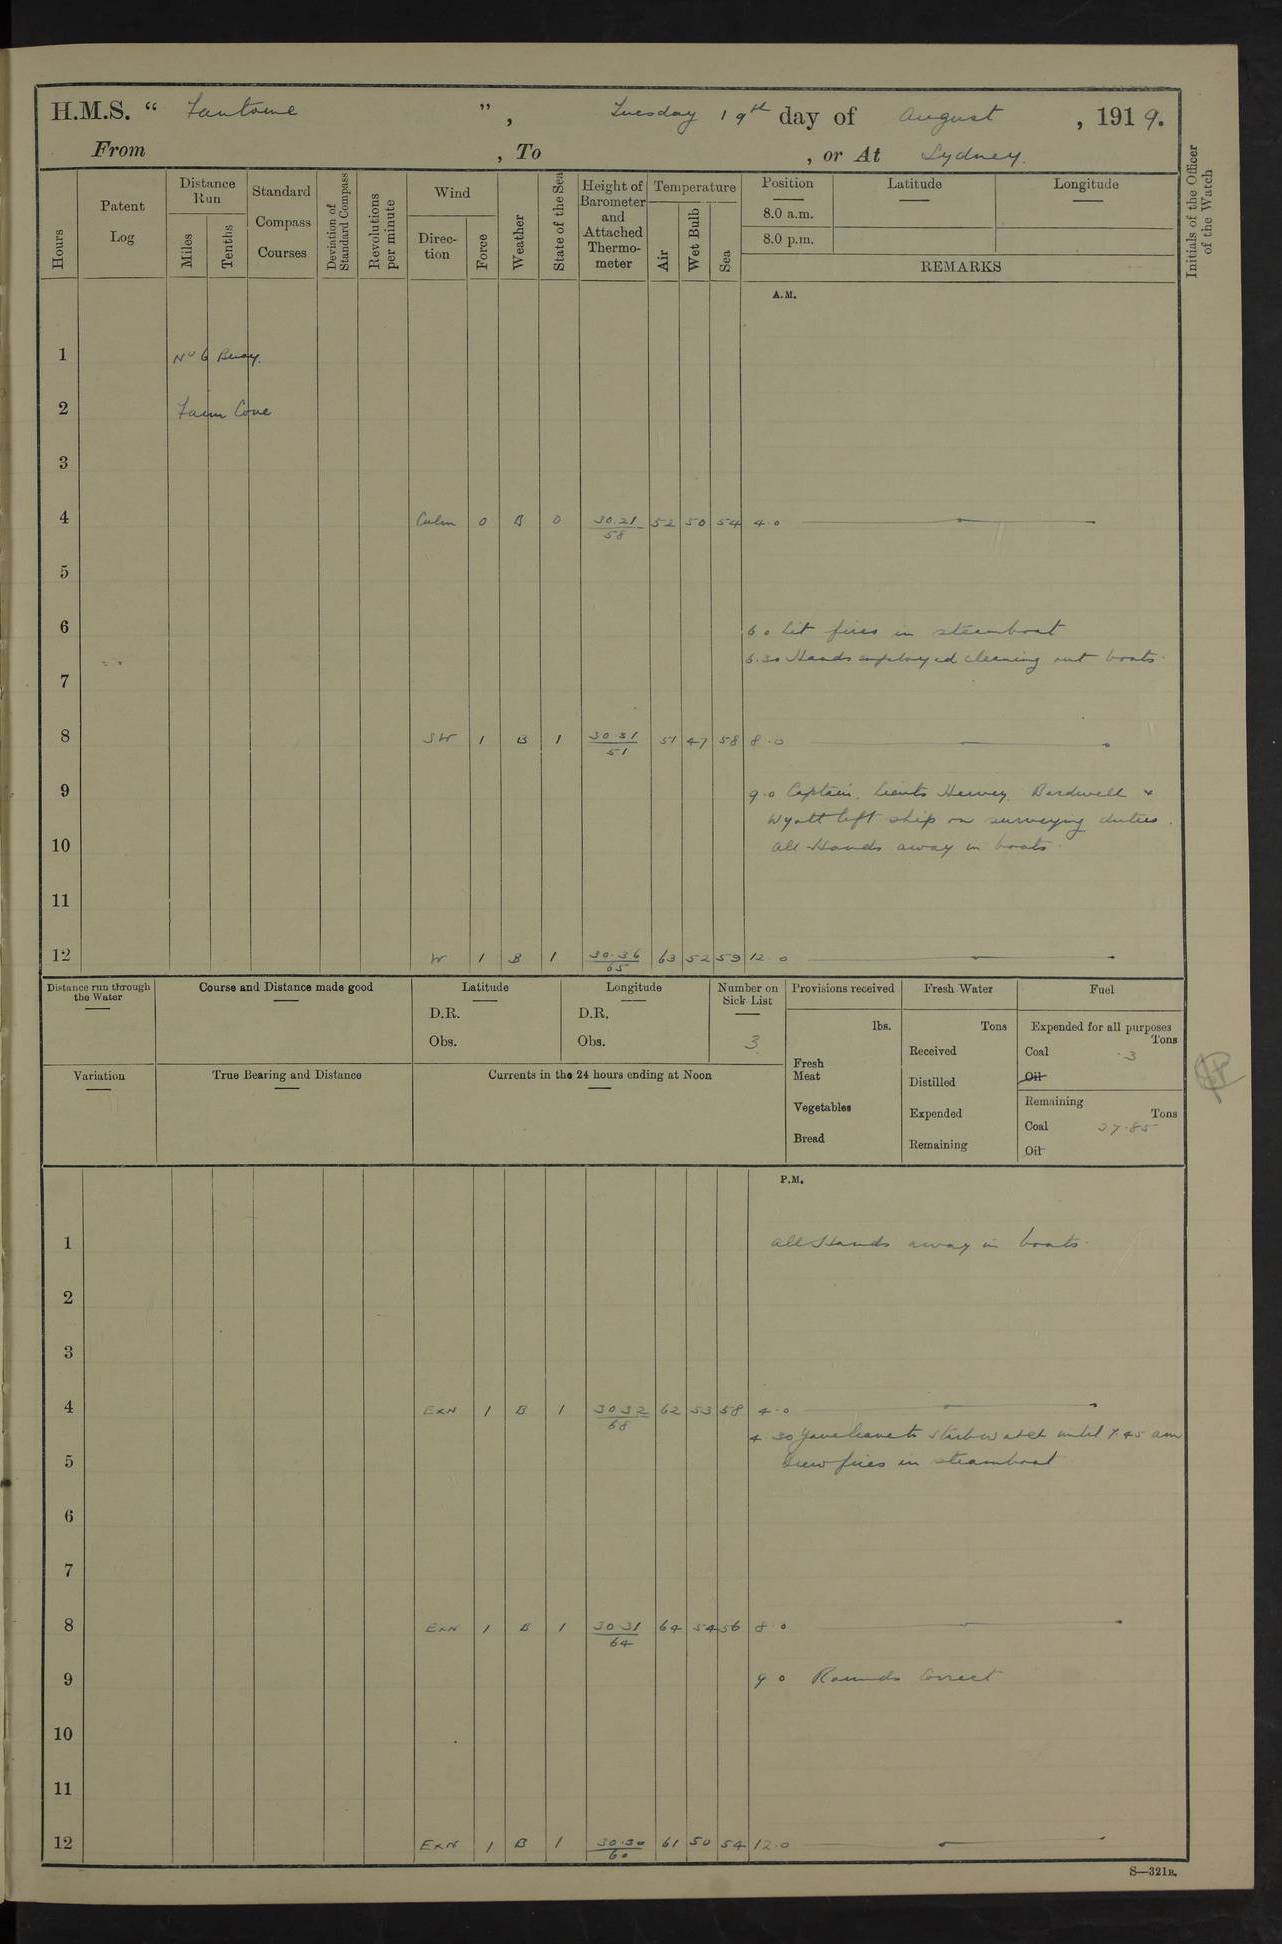 H.M.S. “ Fantome ”, Tuesday 19th day of August, 1919.
From , To , or At Sydney.
Hours
Patent Log
Distance Run
Miles
Tenths
Standard Compass Courses
Deviation of Standard Compass
Revolutions per minute
Wind
Direction
Force
Weather
State of the Sea
Height of Barometer and Attached Thermometer
Temperature
Air
Wet Bulb
Sea
Position
8.0 a.m.
8.0 p.m.
Latitude
Longitude
REMARKS
Initials of the Officer of the Watch
A.M.
1 No 6 Buoy.
2 Farm Cove
3
4 Calm 0 B 0 30.21/58 52 50 54 4.0
5
6 6.0 Lit fires in steamboat
6.30 Hands employed cleaning out boats.
7
8 SW 1 B 1 30.31/51 51 47 58 8.0
9 9.0 Captain, Lieuts Hervey, Bardwell +
Wyatt left ship on surveying duties.
10 All Hands away in boats.
11
12 W 1 B 1 30.36/65 63 52 59 12.0
Distance run through the Water
Course and Distance made good
Latitude
D.R.
Obs.
Longitude
D.R.
Obs.
Number on Sick List
3
Provisions received
lbs.
Fresh Meat
Vegetables
Bread
Fresh Water
Tons
Received
Distilled
Expended
Remaining
Fuel
Expended for all purposes
Tons
Coal .3
Oil
Remaining
Tons
Coal 27.85
Oil
Variation
True Bearing and Distance
Currents in the 24 hours ending at Noon
P.M.
1 All Hands away in boats.
2
3
4 ExN 1 B 1 30.32/68 62 53 58 4.0
4.30 Gave leave to Starb watch until 7.45 am
5 Drew fires in steamboat
6
7
8 ExN 1 B 1 30.31/64 64 54 56 8.0
9 9.0 Rounds Correct
10
11
12 ExN 1 B 1 30.30/60 61 50 54 12.0
S—321B.